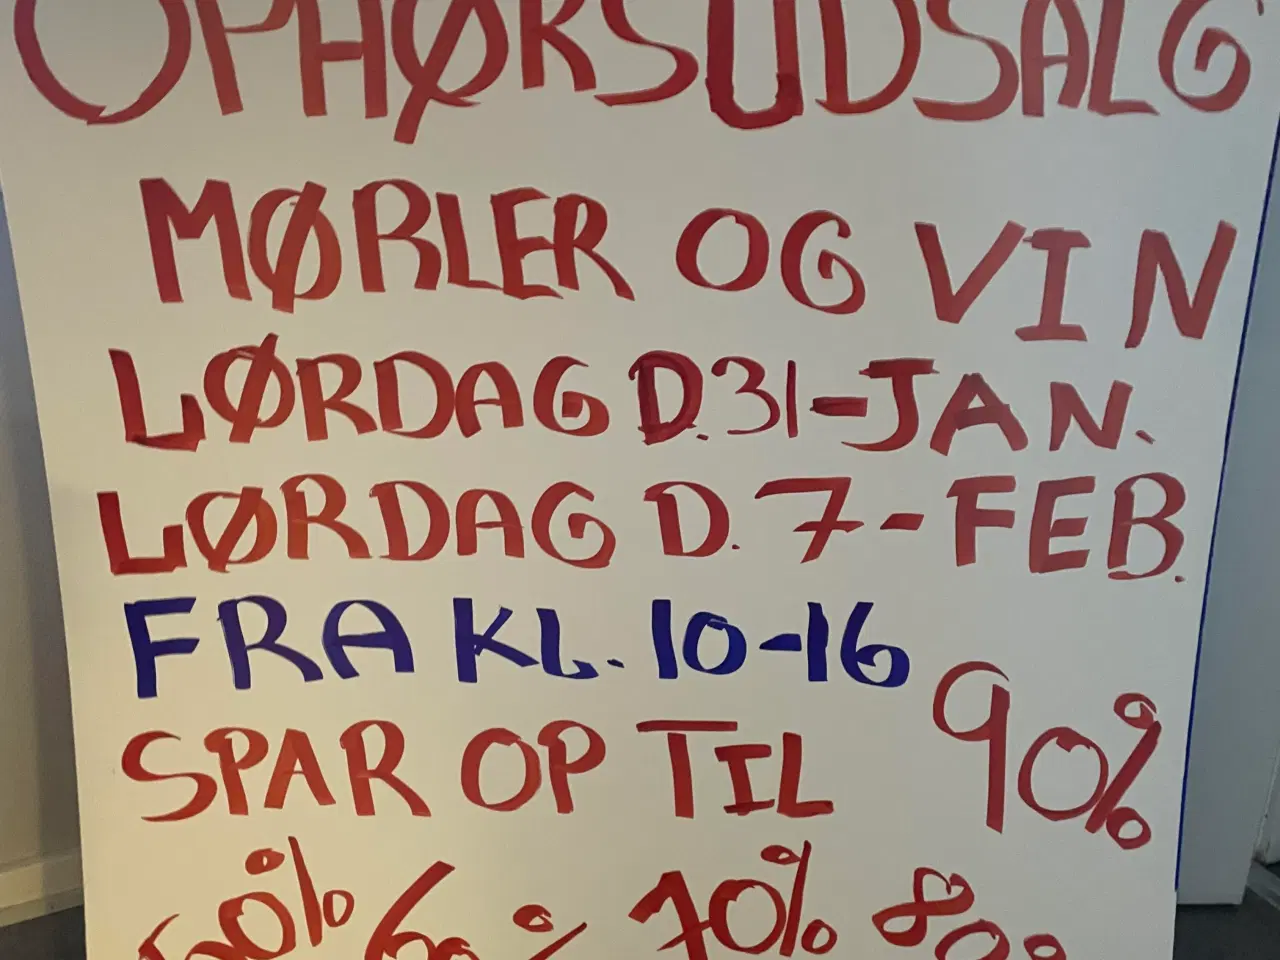 OPHØRSUDSALG
MØRLER OG VIN
LØRDAG D.31-JAN.
LØRDAG D. 7-FEB.
FRA KL. 10-16
SPAR OP TIL 90%
60% 70% 80%